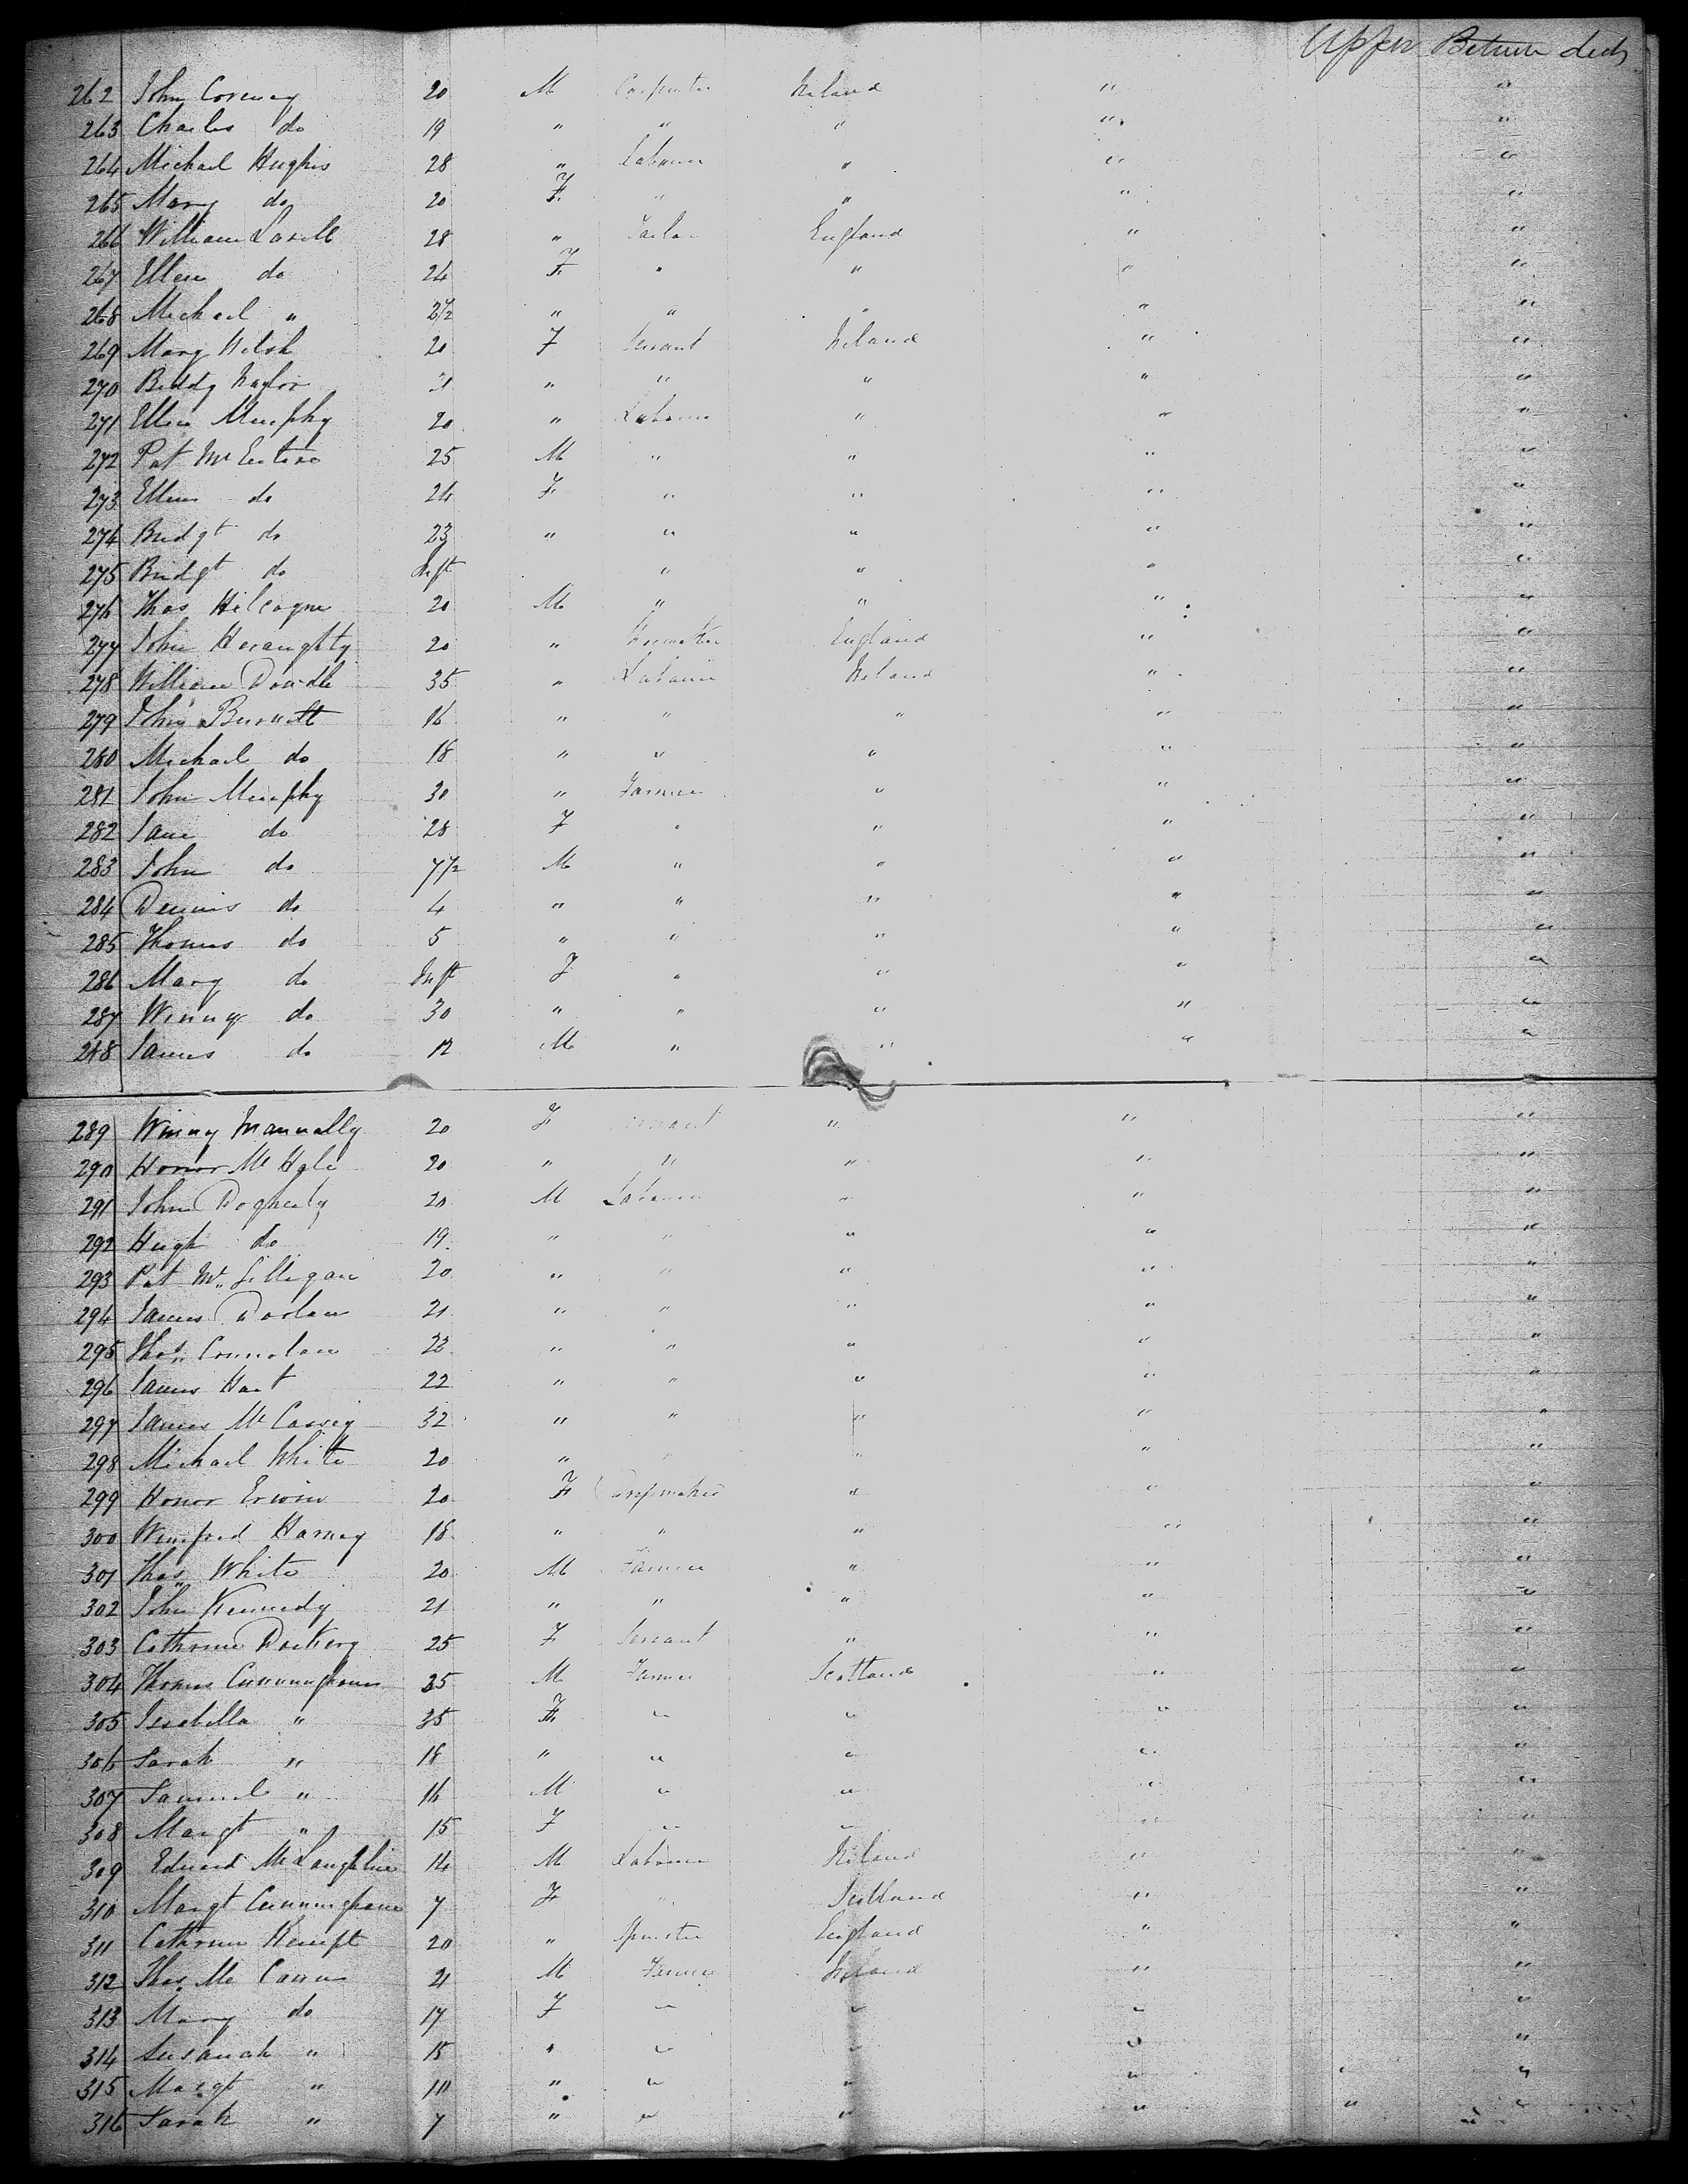 Upper Between decks
262 John 20 M Carpenter Ireland " "
263 Charles do 19 " " " " "
264 Michael Hughes 28 " Labourer " " "
265 Mary do 20 F " " " "
266 William Lavelle 28 " Tailor England " "
267 Ellen do 24 F " " " "
268 Michael " 2 1/2 " " " " "
269 Mary Welsh 20 F Servant Ireland " "
270 Biddy Naylor 21 " " " " "
271 Ellen Murphy 20 " Labourer " " "
272 Pat 25 M " " " "
273 Ellen do 24 F " " " "
274 Bridgt do 23 " " " " "
275 Bridgt do Inft " " " "
276 Thos 20 M " " " "
277 John Heraughty 20 " England " "
278 William 35 " Labourer Ireland " "
279 John Burnett 16 " " " " "
280 Michael do 18 " " " " "
281 John Murphy 30 " Farmer " " "
282 Jane do 28 F " " " "
283 John do 7 1/2 M " " " "
284 Dennis do 4 " " " " "
285 Thomas do 5 " " " " "
286 Mary do Inft F " " " "
287 Winny do 30 " " " " "
288 James do 12 M " " " "
289 Winny Mannally 20 F Servant " " "
290 Honor Mc Hale 20 " " " " "
291 John Dogherty 20 M Labourer " " "
292 Hugh do 19 " " " " "
293 Pat Mc Gilligan 20 " " " " "
294 James 21 " " " " "
295 Thos 22 " " " " "
296 James Hart 22 " " " " "
297 James 32 " " " " "
298 Michael White 20 " " " " "
299 Honor Erwin 20 F " " "
300 Winifred Harney 18 " " " " "
301 Thos White 20 M Farmer " " "
302 John Kennedy 21 " " " " "
303 Cathrine 25 F Servant " " "
304 Thomas Cunningham 35 M Farmer Scotland " "
305 Isabella " 35 F " " " "
306 Sarah " 18 " " " " "
307 Samuel " 16 M " " " "
308 Margt " 15 F " " " "
309 Edward McLaughlin 14 M Labourer Ireland " "
310 Margt Cunningham 7 F " Scotland " "
311 Cathrine 20 " Spinster England " "
312 Thos Mc 21 M Farmer Ireland " "
313 Mary do 17 F " " " "
314 Susanah " 15 " " " " "
315 Margt " 10 " " " " " "
316 Sarah " 7 " " " " " "